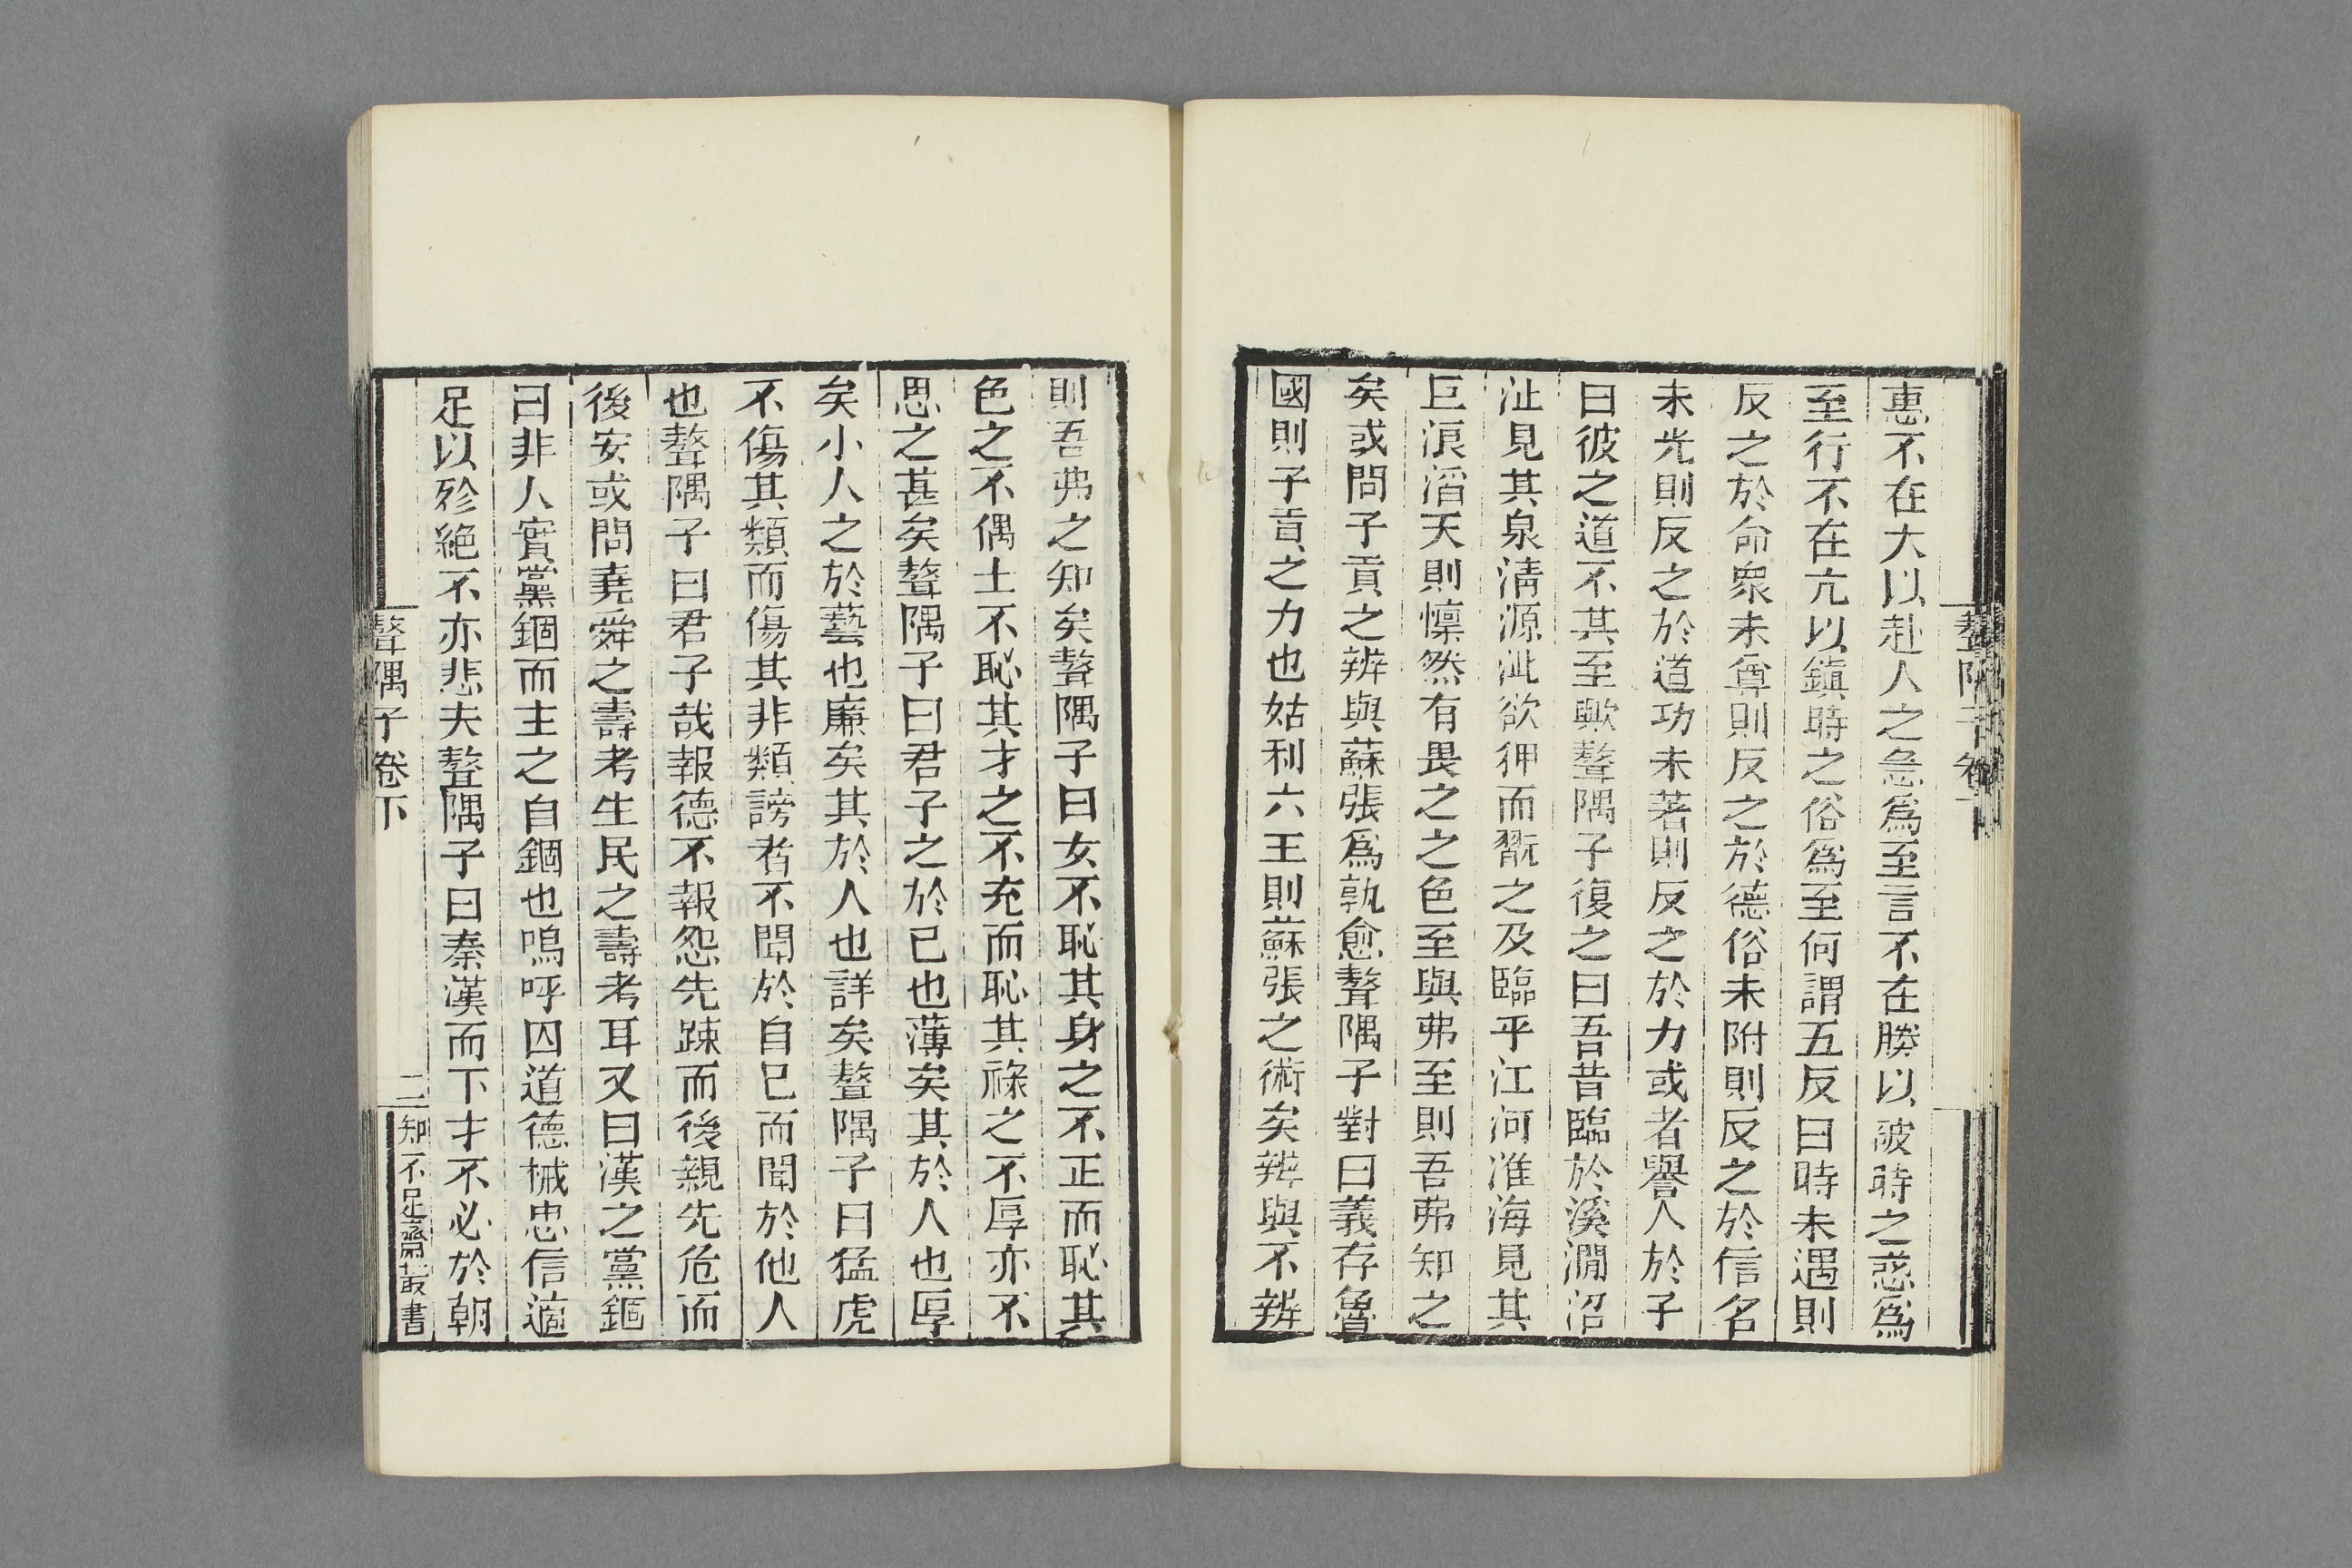 惠不在大以赴人之急爲至言不在勝以破時之惑爲
至行不在亢以鎮時之俗爲至何謂五反曰時未遇則
反之於命衆未尊則反之於德俗未附則反之於信名
未光則反之於道功未著則反之於力或者譽人於子
曰彼之道不其至歟聱隅子復之曰吾昔臨於溪澗沼
沚見其泉清源沘欲狎而翫之及臨乎江河淮海見其
巨浪滔天則懍然有畏之之色至與弗至則吾弗知之
矣或問子貢之辨與蘇張爲孰愈聱隅子對曰義存魯
國則子貢之力也姑利六王則蘇張之術矣辨與不辨
則吾弗之知矣聱隅子曰女不恥其身之不正而恥其
色之不偶士不恥其才之不充而恥其祿之不厚亦不
思之甚矣聱隅子曰君子之於已也薄矣其於人也厚
矣小人之於藝也廉矣其於人也詳矣聱隅子曰猛虎
不傷其類而傷其非類謗者不聞於自已而聞於他人
也聱隅子曰君子哉報德不報怨先踈而後親先危而
後安或問堯舜之壽考生民之壽考耳又曰漢之黨錮
曰非人實黨錮而主之自錮也嗚呼囚道德械忠信適
足以殄絕不亦悲夫聱隅子曰秦漢而下才不必於朝
聱隅子卷下
二
知不足齋叢書